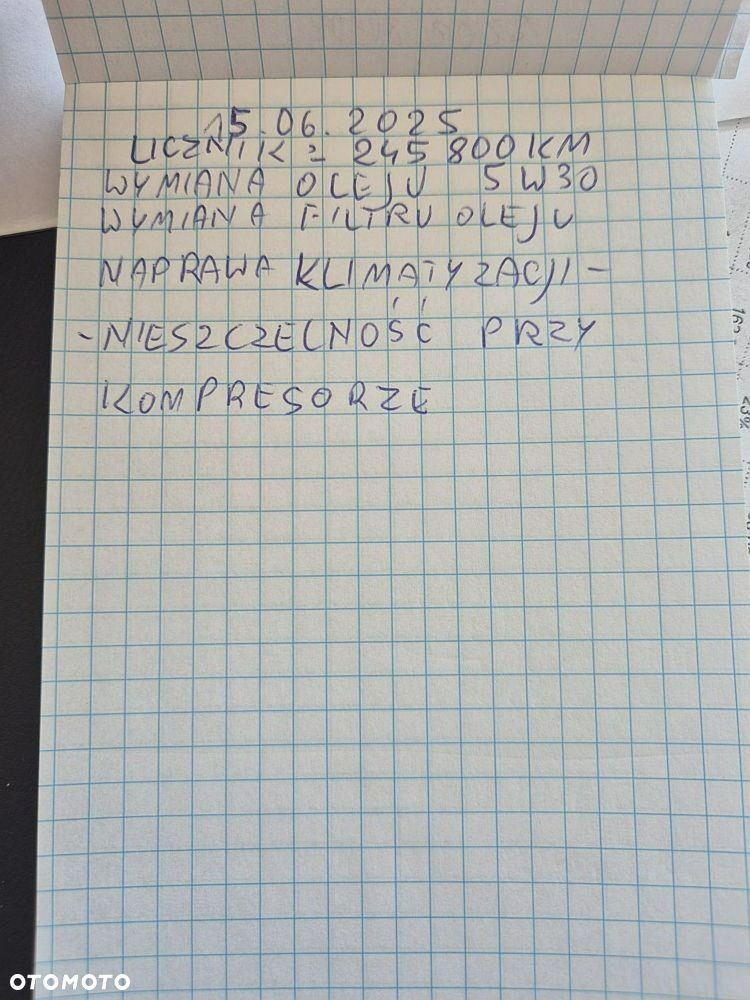 15.06.2025
LICZNIK = 245 800 KM
WYMIANA OLEJU 5W30
WYMIANA FILTRU OLEJU
NAPRAWA KLIMATYZACJI -
- NIESZCZELNOŚĆ PRZY
KOMPRESORZE
OTOMOTO